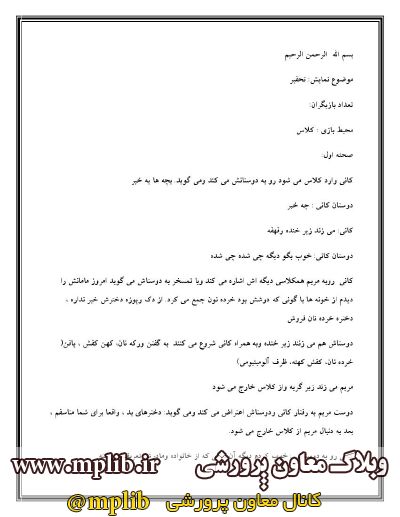 بسم الله الرحمن الرحیم
موضوع نمایش: تحقیر
تعداد بازیگران:
محیط بازی : کلاس
صحنه اول:
کانی وارد کلاس می شود رو به دوستانش می کند ومی گوید. بچه ها یه خبر
دوستان کانی : چه خبر
کانی: می زند زیر خنده وقهقه
دوستان کانی: خوب بگو دیگه چی شده چی شده
کانی روبه مریم همکلاسی دیگه اش اشاره می کند وبا تمسخر به دوستاش می گوید امروز مامانش را
دیدم از خونه ها با گونی که دوشش بود خرده نون جمع می کرد. از دک وپوزه دخترش خبر نداره ،
دختره خرده نان فروش
دوستاش هم می زنند زیر خنده وبه همراه کانی شروع می کنند به گفتن ورکه نان، کهن کفش ، یافن(
خرده نان، کفش کهنه، ظرف آلومینیومی)
مریم می زند زیر گریه واز کلاس خارج می شود
دوست مریم به رفتار کانی ودوستاش اعتراض می کند ومی گوید: دخترهای بد ، واقعا برای شما متاسفم ،
بعد به دنبال مریم از کلاس خارج می شود.
رو به خوب کردم دیگه که از خانواده
وبلاگ معاون پرورشی www.mplib.ir
کانال معاون پرورشی @mplib